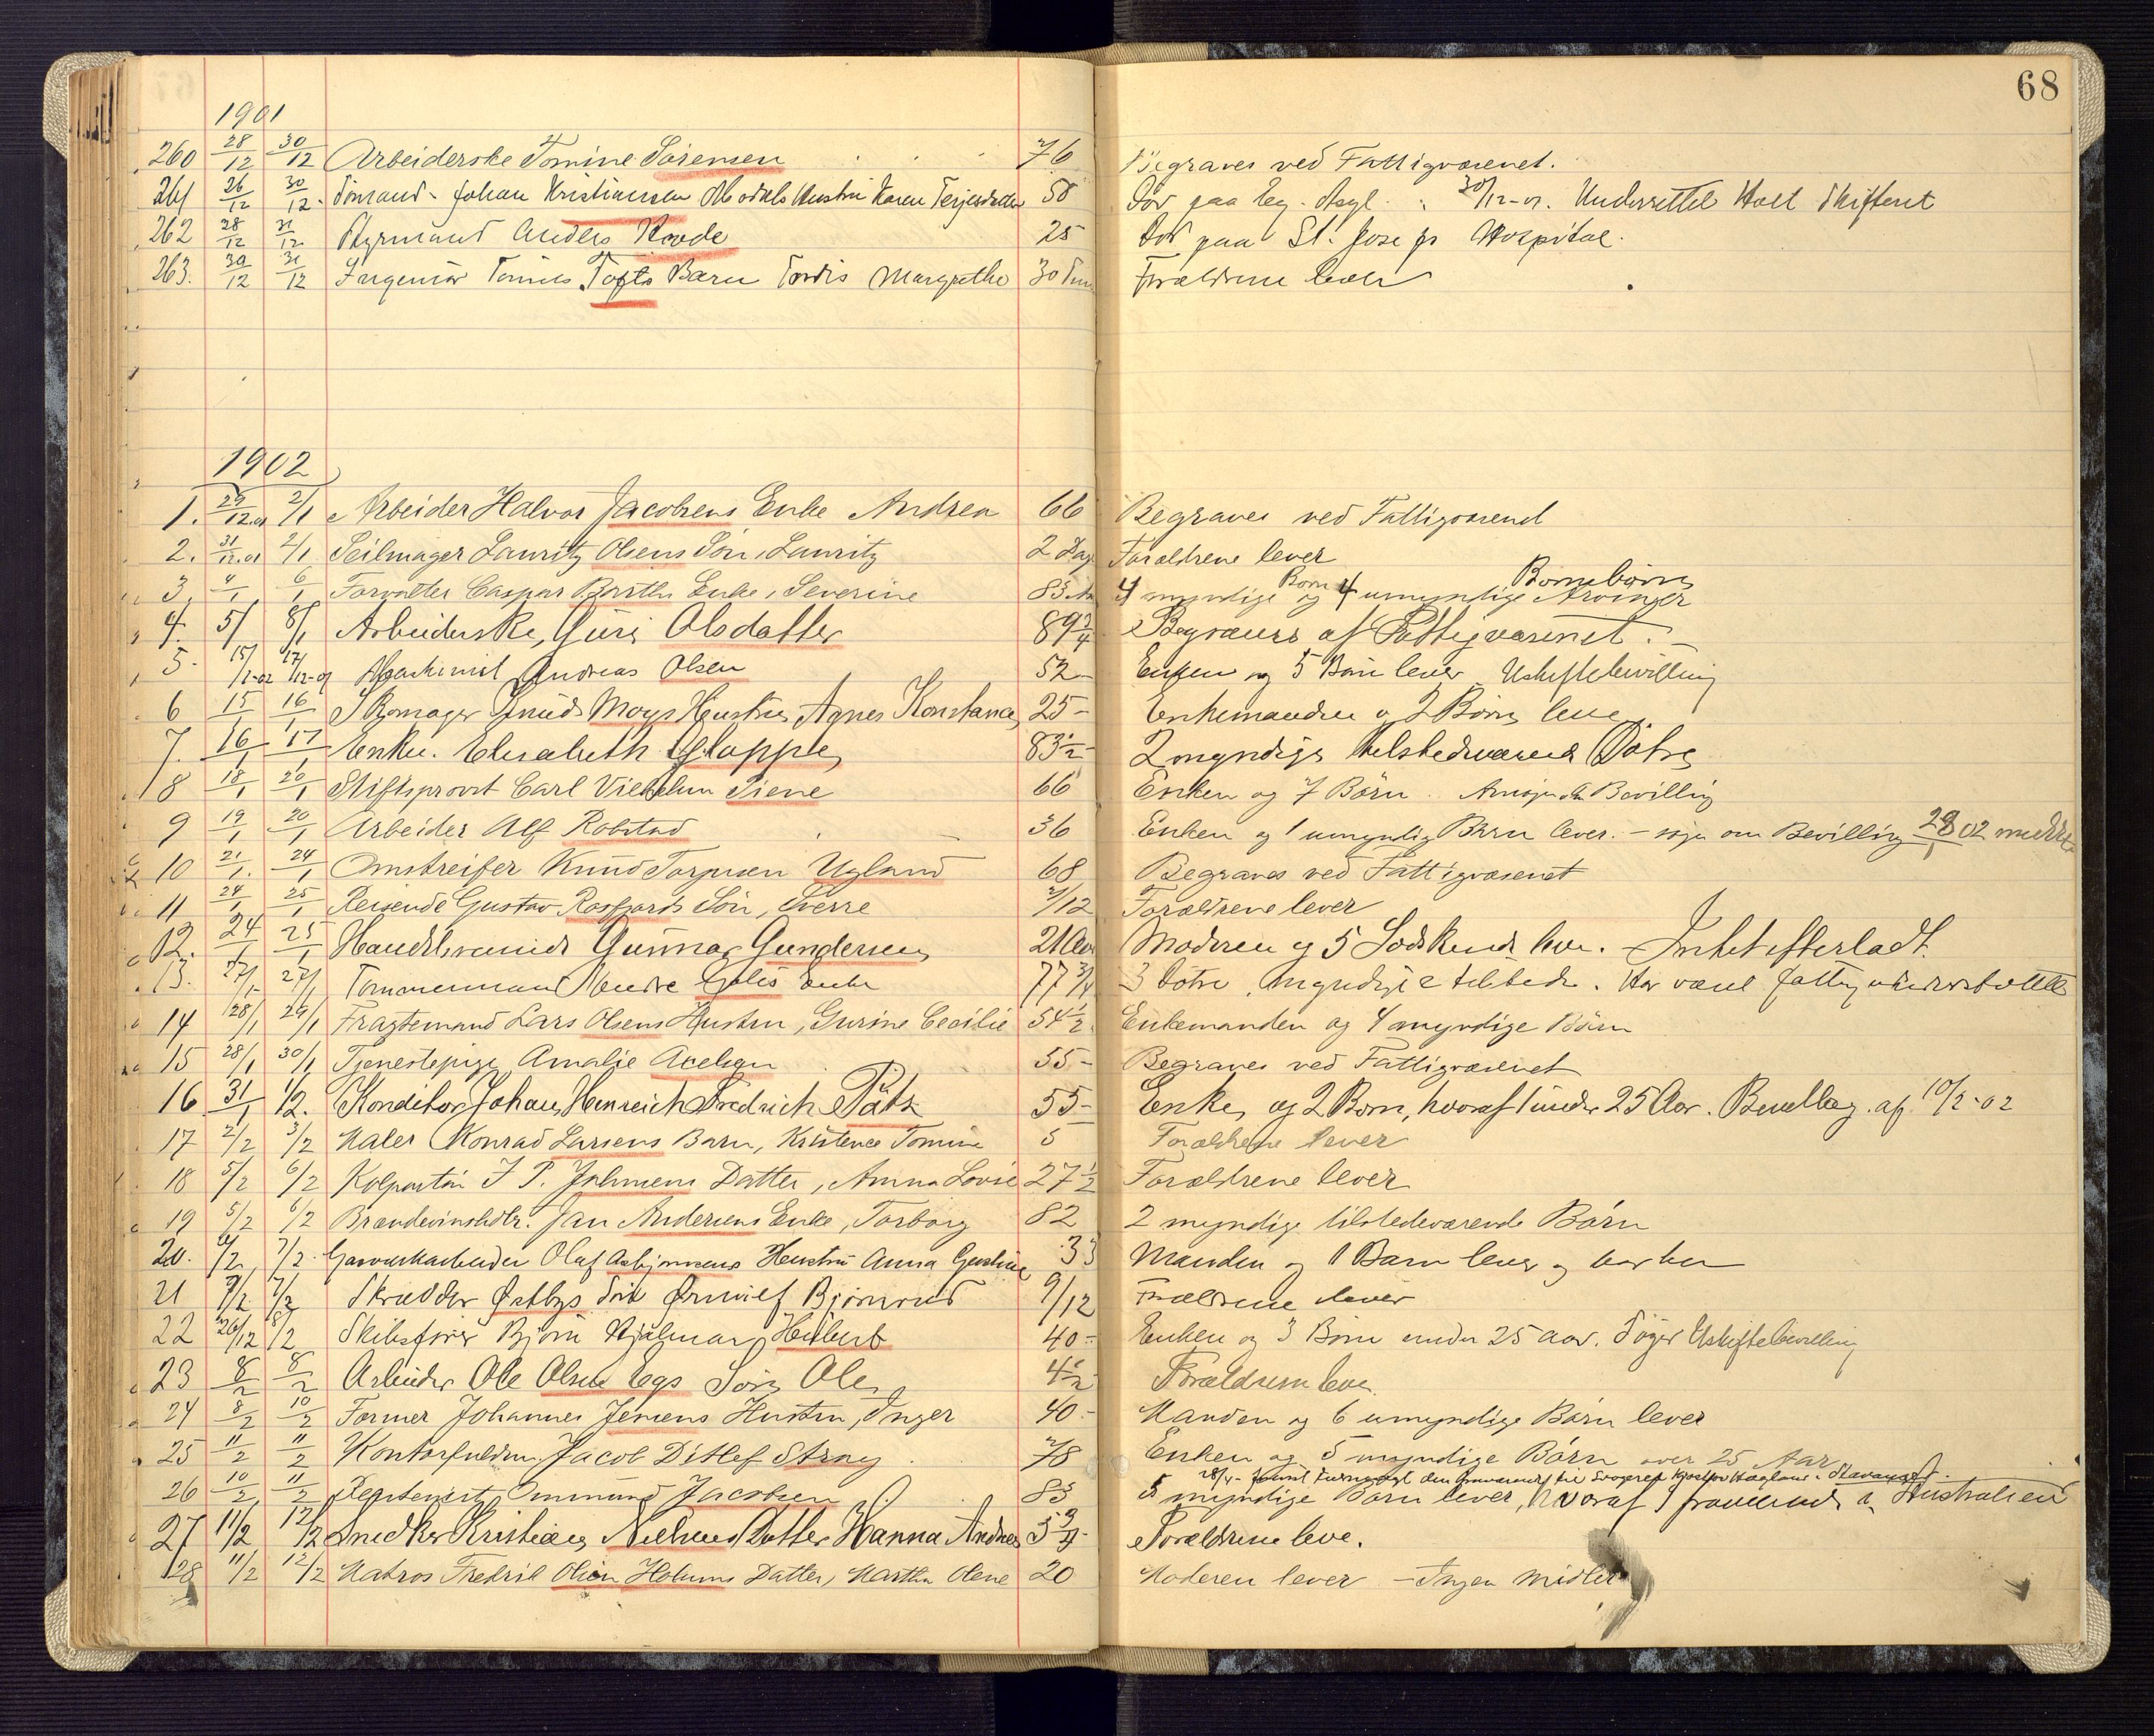 68
1901
260 28/12 30/12 Arbeiderske Tomine Sørensen 76 Begraves ved Fattigvæsenet.
261 26/12 30/12 Tømand. Johan Kristiansen Hustru Karen Terjesdatter 58 Død paa Eg. Asyl. 30/12-01. Underrettet Holt Skifteret
262 28/12 31/12 Styrmand Anders Hovde 25 Død paa St. Josefs Hospital.
263. 30/12 31/12 Ingeniør Tønnes Tofts Barn Tordis Margrethe 30 Tim Forældrene lever
1902
1. 29/12.01 2/1 Arbeider Halvor Jacobsens Enke Andrea 66 Begraves ved Fattigvæsenet
2. 31/12.01 2/1 Seilmager Lauritz Olsens Søn, Lauritz 2 Dag Forældrene lever
3. 4/1 6/1 Forvalter Caspar Barths Enke, Severine 83 4 myndige Børn og 4 umyndige Arvinger Børnebørn
4. 5/1 8/1 Arbeiderske, Guri Olsdatter 89 3/4 Begraves af Fattigvæsenet.
5. Maskinist Andreas Olsen 52 Enken og 5 Børn lever Uskiftebevilling
6 15/1 16/1 Skomager Knud Moys Hustru, Agnes Konstance 25 - Enkemanden og 2 Børn leve.
7. 16/1 17/1 Enke. Elisabeth Gloppe 83 1/2 - 2 myndige tilstedeværende Døtre
8 18/1 20/1 Stiftsprovst Carl Vilhelm Siene 66 Enken og 7 Børn. Bevilling
9 19/1 20/1 Arbeider Alf Robstad 36 Enken og 1 umyndig Barn lever. - søger om Bevilling 28/1 02
10 21/1. 24/1 Omstreifer Knud Torjusen Ugland 68 Begraves ved Fattigvæsenet
11 24/1 25/1 Reisende Gustav Søn, Sverre 7/12 Forældrene lever
12. 24/1 25/1 Gunnar Gundersen 21 Aar Moderen og 5 Sødskende leve. - Intet efterladt.
13. 27/1 27/1 Tømmermand Enke 77 3/4 3 Døtre, myndige & tilstede. Har været fattigunderstøttet
14 28/1 29/1 Fragtemand Lars Olsens Hustru, Gurine Cecilie 54 1/2 Enkemanden og 4 myndige Børn
15 28/1 30/1 Tjenestepige Amalie Acelsen 55 - Begraves ved Fattigvæsenet
16 31/1 1/2. Konditor Johan Henreich Fredrich Pätz 55 - Enke og 2 Børn, hvoraf 1 under 25 Aar. af 10/2-02
17 2/2 3/2 Maler Konrad Larsens Barn, Kristence Tomine 5 Forældrene lever
18 5/2 6/2 Kolportør J P. Johnsens Datter, Anna Lovise 27 1/2 Forældrene lever
19 5/2 6/2 Brændevinshdlr. Jan Andersens Enke, Torborg 82 2 myndige tilstedeværende Børn
20. 6/2 7/2. Garveriarbeider Olaf Asbjørnsens Hustru Anna Gustine 33 Manden og 1 Barn lever og
21 Skrædder Østbys Søn Ørnulf Bjørnrud 9/12 Forældrene lever
22 26/12 8/2 Skibsfører Bjørn Hjalmar 40 - Enken og 3 Børn under 25 Aar. Søger Uskiftebevilling
23 8/2 8/2 Arbeider Ole Olsen Egs Søn Ole 4 1/2 Forældrene leve.
24 8/2 10/2 Former Johannes Jensens Hustru, Inger 40. - Manden og 6 umyndige Børn lever
25 11/2 11/2 Jacob Ditlef Stray 78 Enken og 5 myndige Børn over 25 Aar
26 10/2 11/2 Ommund Jacobsen 83 5 myndige Børn lever, hvoraf 1 fraværende i Australien
27 11/2 12/2 Snedker Kristian Nielsens Datter Hanna Andrea 5 3/4 - Forældrene leve.
28 11/2 12/2 Matros Fredrik Olsen Holums Datter, Martha Olene 20 Moderen lever - Ingen midler